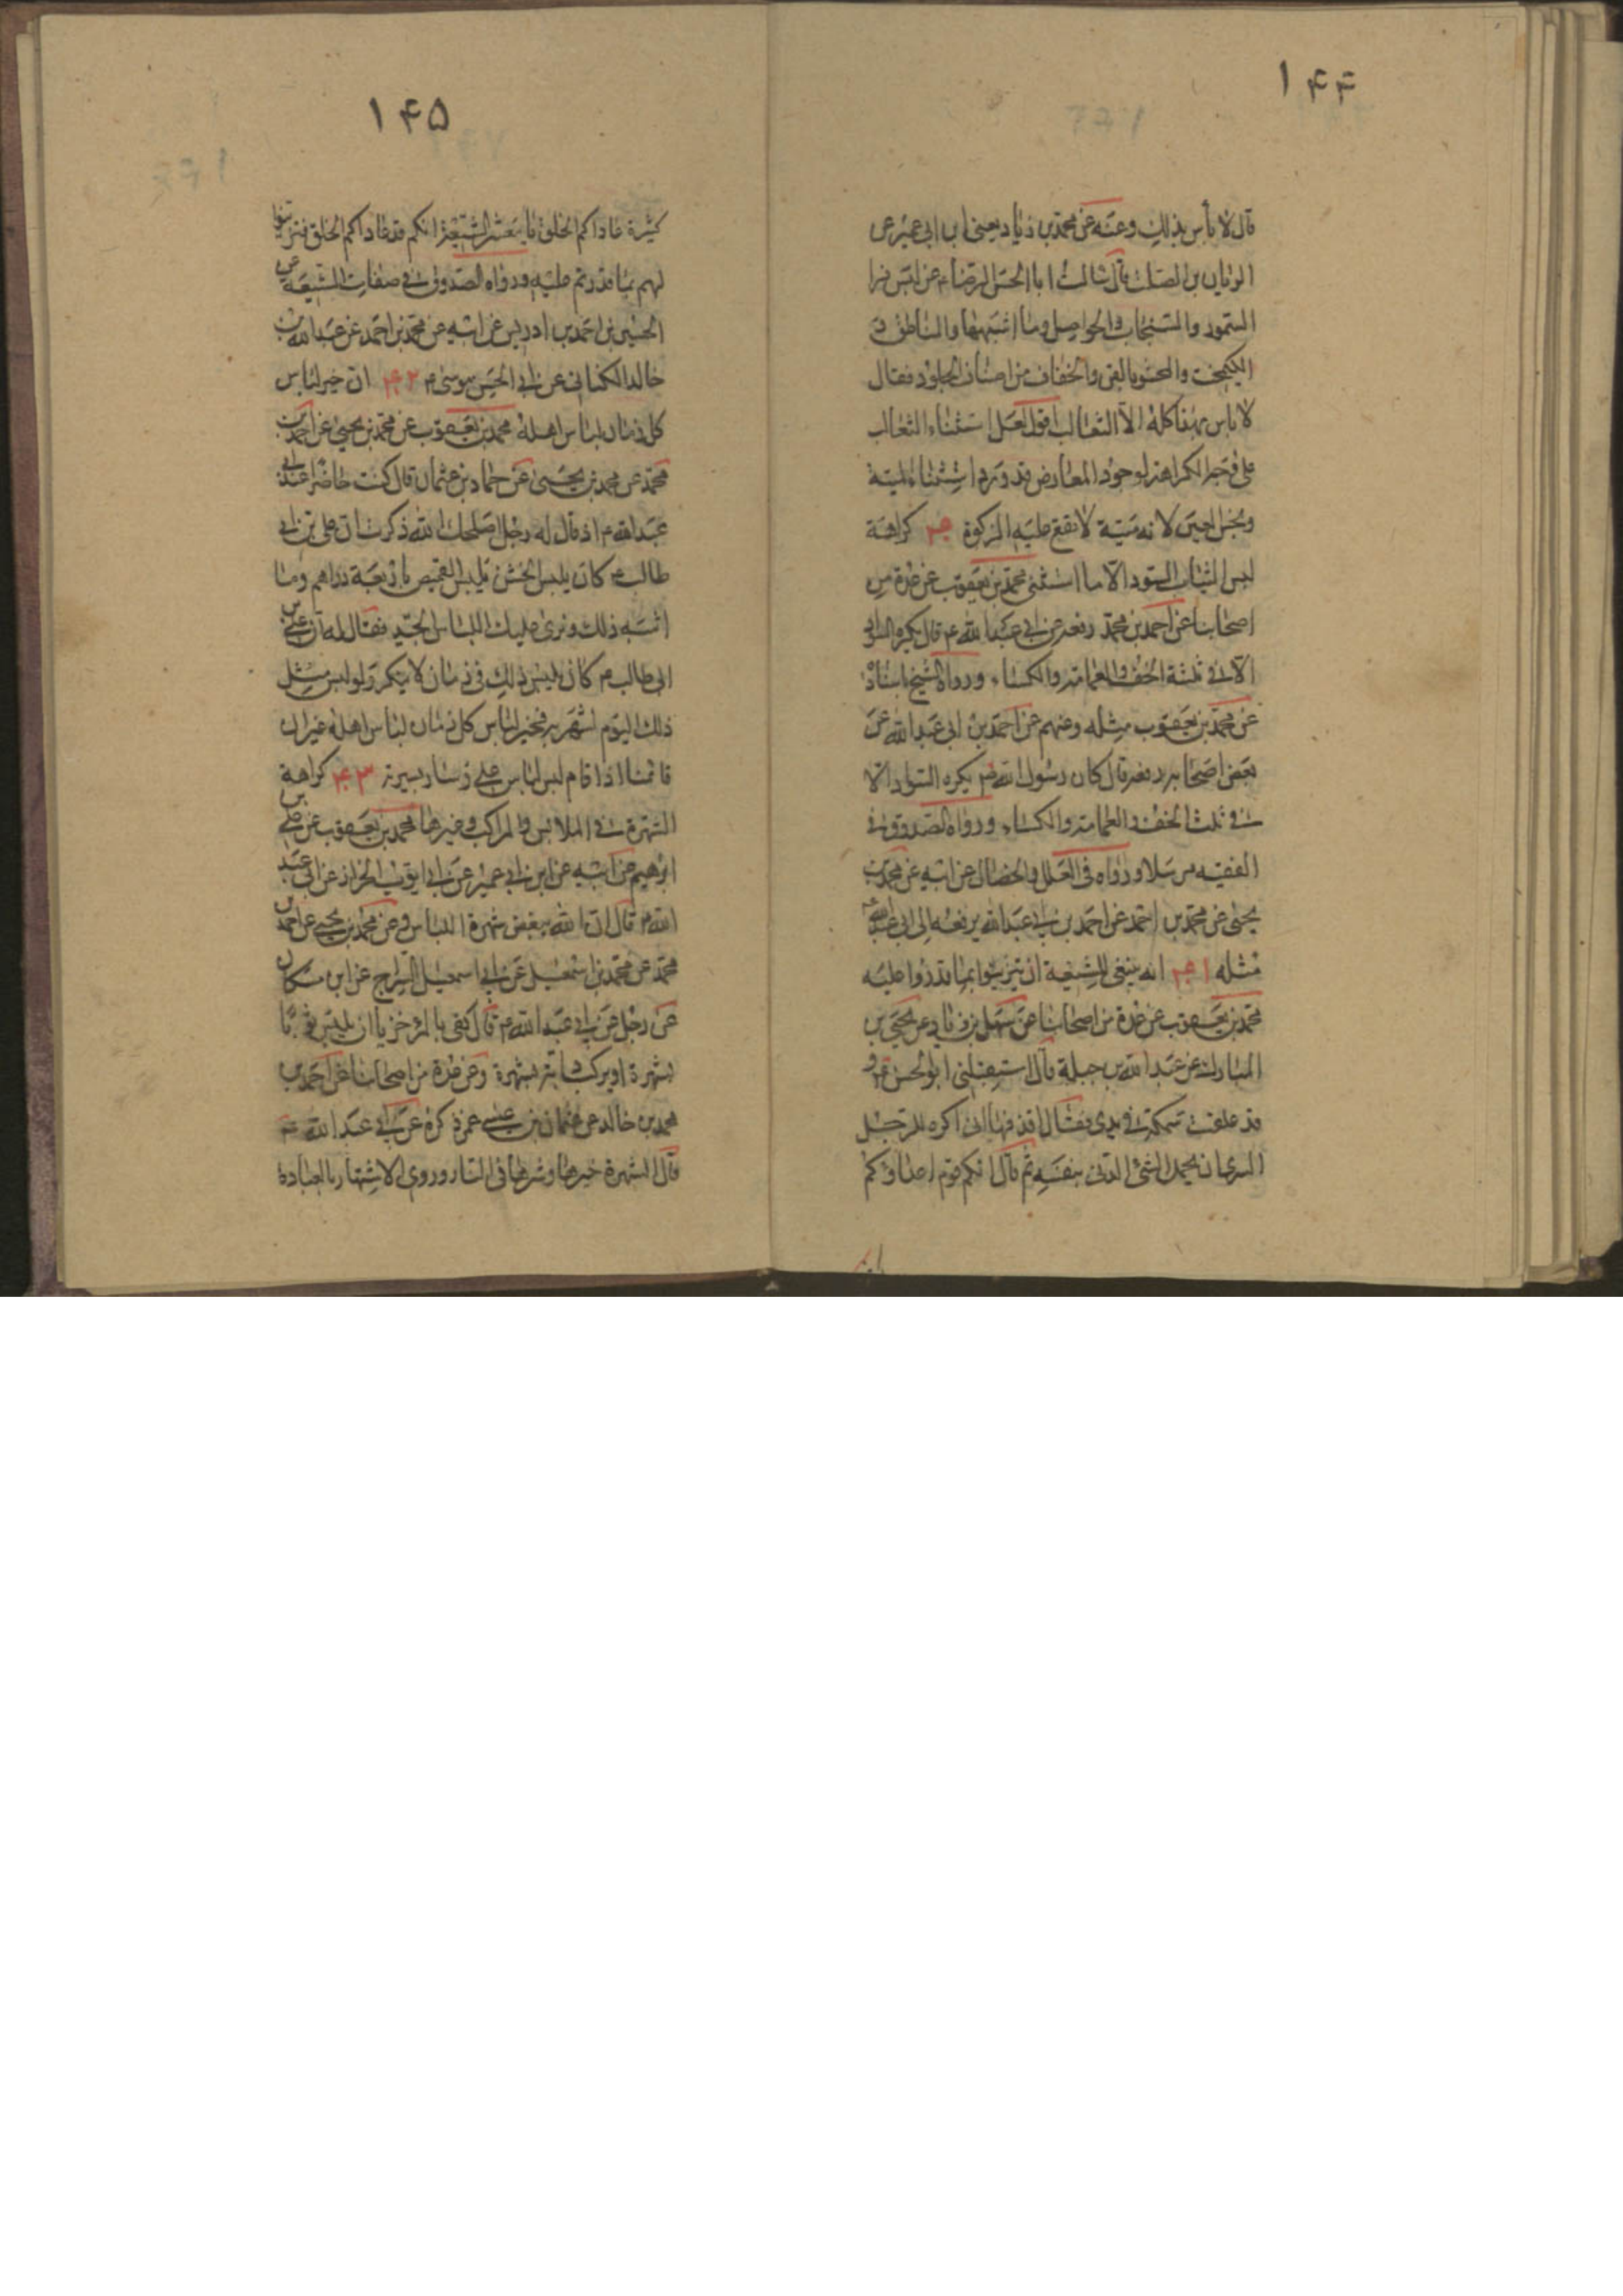 ۱۴۴
قال لا باس بذلك وعنه عن محمد بن زياد يعنى ابن ابى عمير عن
الريان بن الصلت قال سالت ابا الحسن الرضا ع عن لبس فرا
السمور والسنجاب والحواصل وما اشبهها والمناطق و
الكيمخت والمحشو بالقز والخفاف من اصناف الجلود فقال
لا باس بهذا كله الا الثعالب اقول لعل استثناء الثعالب
على وجه الكراهة لوجود المعارض قد ورد استثناء الميتة
ونجس العين لانه ميتة لا تقع عليه الزكوة ۴۰ كراهة
لبس الثياب السود الا ما استثنى محمد بن يعقوب عن عدة من
اصحابنا عن احمد بن محمد رفعه عن ابى عبد الله ع قال يكره السواد
الا فى ثلثة الخف والعمامة والكساء ورواه الشيخ باسناده
عن محمد بن يعقوب مثله وعنهم عن احمد بن ابى عبد الله عن
بعض اصحابه رفعه قال كان رسول الله ص يكره السواد الا
فى ثلث الخف والعمامة والكساء ورواه الصدوق فى
الفقيه مرسلا ورواه فى العلل والخصال عن ابيه عن محمد بن
يحيى عن محمد بن احمد عن احمد بن ابى عبد الله يرفعه الى ابى عبد الله ع
مثله ۴۱ انه ينبغى للشيعة ان يتزينوا بما قدروا عليه
محمد بن يعقوب عن عدة من اصحابنا عن سهل بن زياد عن يحيى بن
المبارك عن عبد الله بن جبلة قال استقبلنى ابو الحسن ع و
قد علقت سمكة فى يدى فقال اقذفها انى اكره للرجل
السرى ان يحمل الشئ الدنى بنفسه ثم قال انكم قوم اعداؤكم
۱۴۵
كثيرة عاداكم الخلق يا معشر الشيعة انكم قد عاداكم الخلق فتزينوا
لهم بما قدرتم عليه ورواه الصدوق فى صفات الشيعة عن
الحسين بن احمد بن ادريس عن ابيه عن محمد بن احمد عن عبد الله بن
خالد الكنانى عن ابى الحسن موسى ع ۴۲ ان خير لباس
كل زمان لباس اهله محمد بن يعقوب عن محمد بن يحيى عن احمد بن
محمد عن محمد بن يحيى عن حماد بن عثمان قال كنت حاضرا عند ابى
عبد الله ع اذ قال له رجل اصلحك الله ذكرت ان على بن ابى
طالب ع كان يلبس الخشن يلبس القميص باربعة دراهم وما
اشبه ذلك ونرى عليك اللباس الجيد فقال له ان على بن
ابى طالب ع كان يلبس ذلك فى زمان لا ينكر ولو لبس مثل
ذلك اليوم لشهر به فخير لباس كل زمان لباس اهله غير ان
قائمنا اذا قام لبس لباس على وسار بسيرته ۴۳ كراهة
الشهرة فى الملابس والمراكب وغيرها محمد بن يعقوب عن على بن
ابرهيم عن ابيه عن ابن ابى عمير عن ابى ايوب الخراز عن ابى عبد
الله ع قال ان الله يبغض شهرة اللباس وعن محمد بن يحيى عن احمد بن
محمد عن محمد بن اسمعيل عن ابى اسمعيل السراج عن ابن مسكان
عن رجل عن ابى عبد الله ع قال كفى بالمرء خزيا ان يلبس ثوبا
بشهرة او يركب دابة بشهرة وعن عدة من اصحابنا عن احمد بن
محمد بن خالد عن عثمان بن عيسى عمن ذكره عن ابى عبد الله ع
قال الشهرة خيرها وشرها فى النار وروى الاشتهار بالعبادة